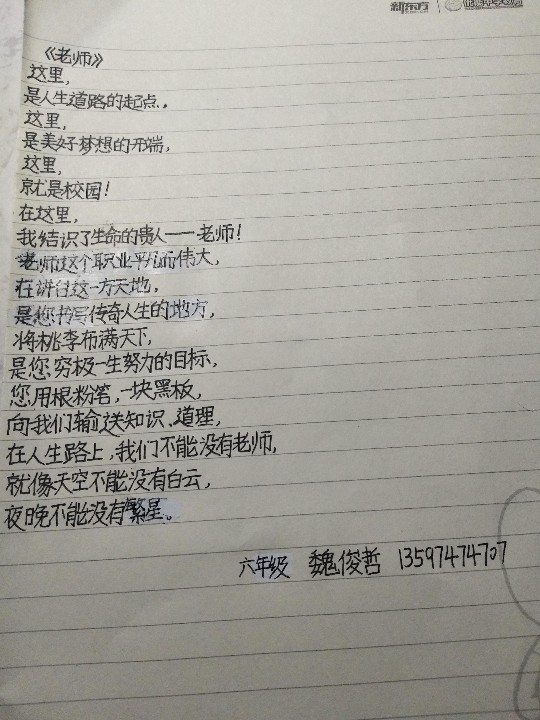 新东方
《老师》
这里,
是人生道路的起点,
这里,
是美好梦想的开端,
这里,
就是校园!
在这里,
我结识了生命的贵人——老师!
老师这个职业平凡而伟大,
在讲台这一方天地,
是您书写传奇人生的地方,
将桃李布满天下,
是您穷极一生努力的目标,
您用根粉笔,一块黑板,
向我们输送知识、道理,
在人生路上,我们不能没有老师,
就像天空不能没有白云,
夜晚不能没有繁星。
六年级 魏俊哲 13597474707